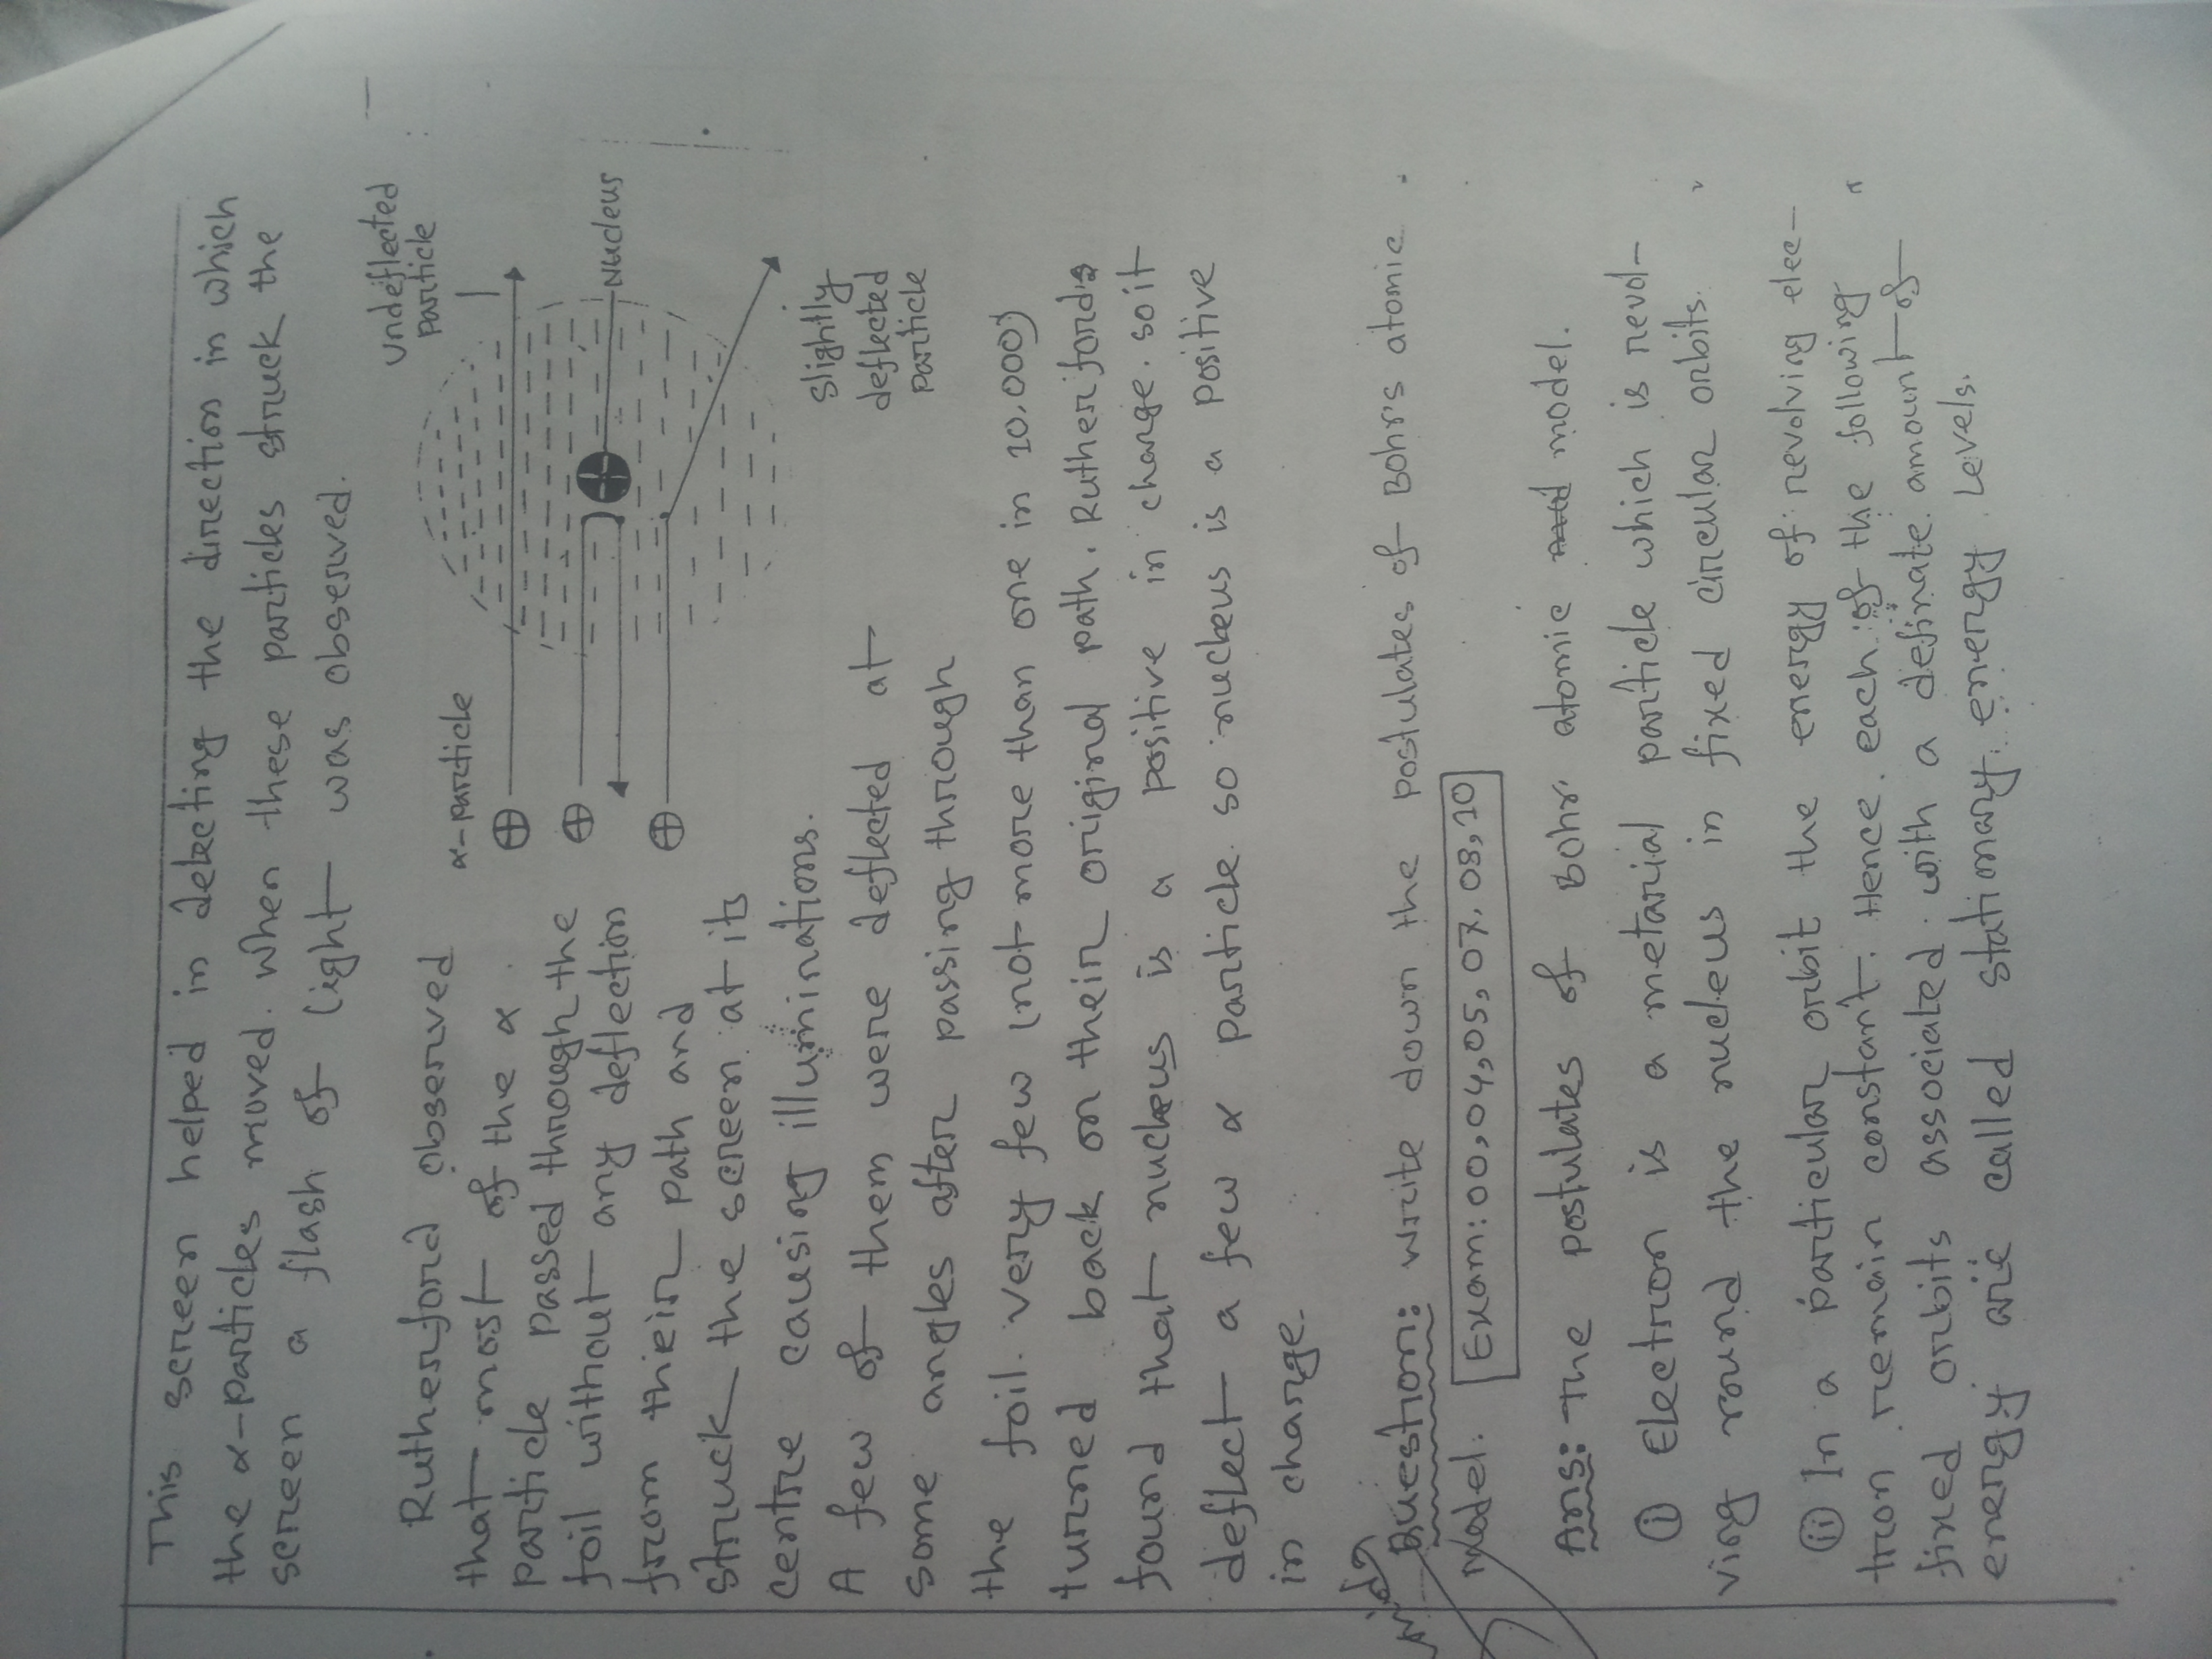 This screen helped in detecting the direction in which
the α-particles moved. When these particles struck the
screen a flash of light was observed.
Rutherford observed
that most of the α
particle passed through the
foil without any deflection
from their path and
struck the screen at its
centre causing illuminations.
undeflected
particle
α-particle
Nucleus
slightly
deflected
particle
A few of them were deflected at
some angles after passing through
the foil. very few (not more than one in 10,000)
turned back on their original path. Rutherford's
found that nucleus is a positive in charge. so it
deflect a few α particle. so nucleus is a positive
in charge.
Question: write down the postulates of Bohr's atomic
Model. Exam: 00, 04, 05, 07, 08, 10
Ans: The postulates of Bohr atomic model.
(i) Electron is a metarial particle which is revol-
ving round the nucleus in fixed circular orbits.
(ii) In a particular orbit the energy of revolving elec-
tron remain constant. Hence each of the following
fixed orbits associated with a definate amount of
energy are called stationary energy levels.